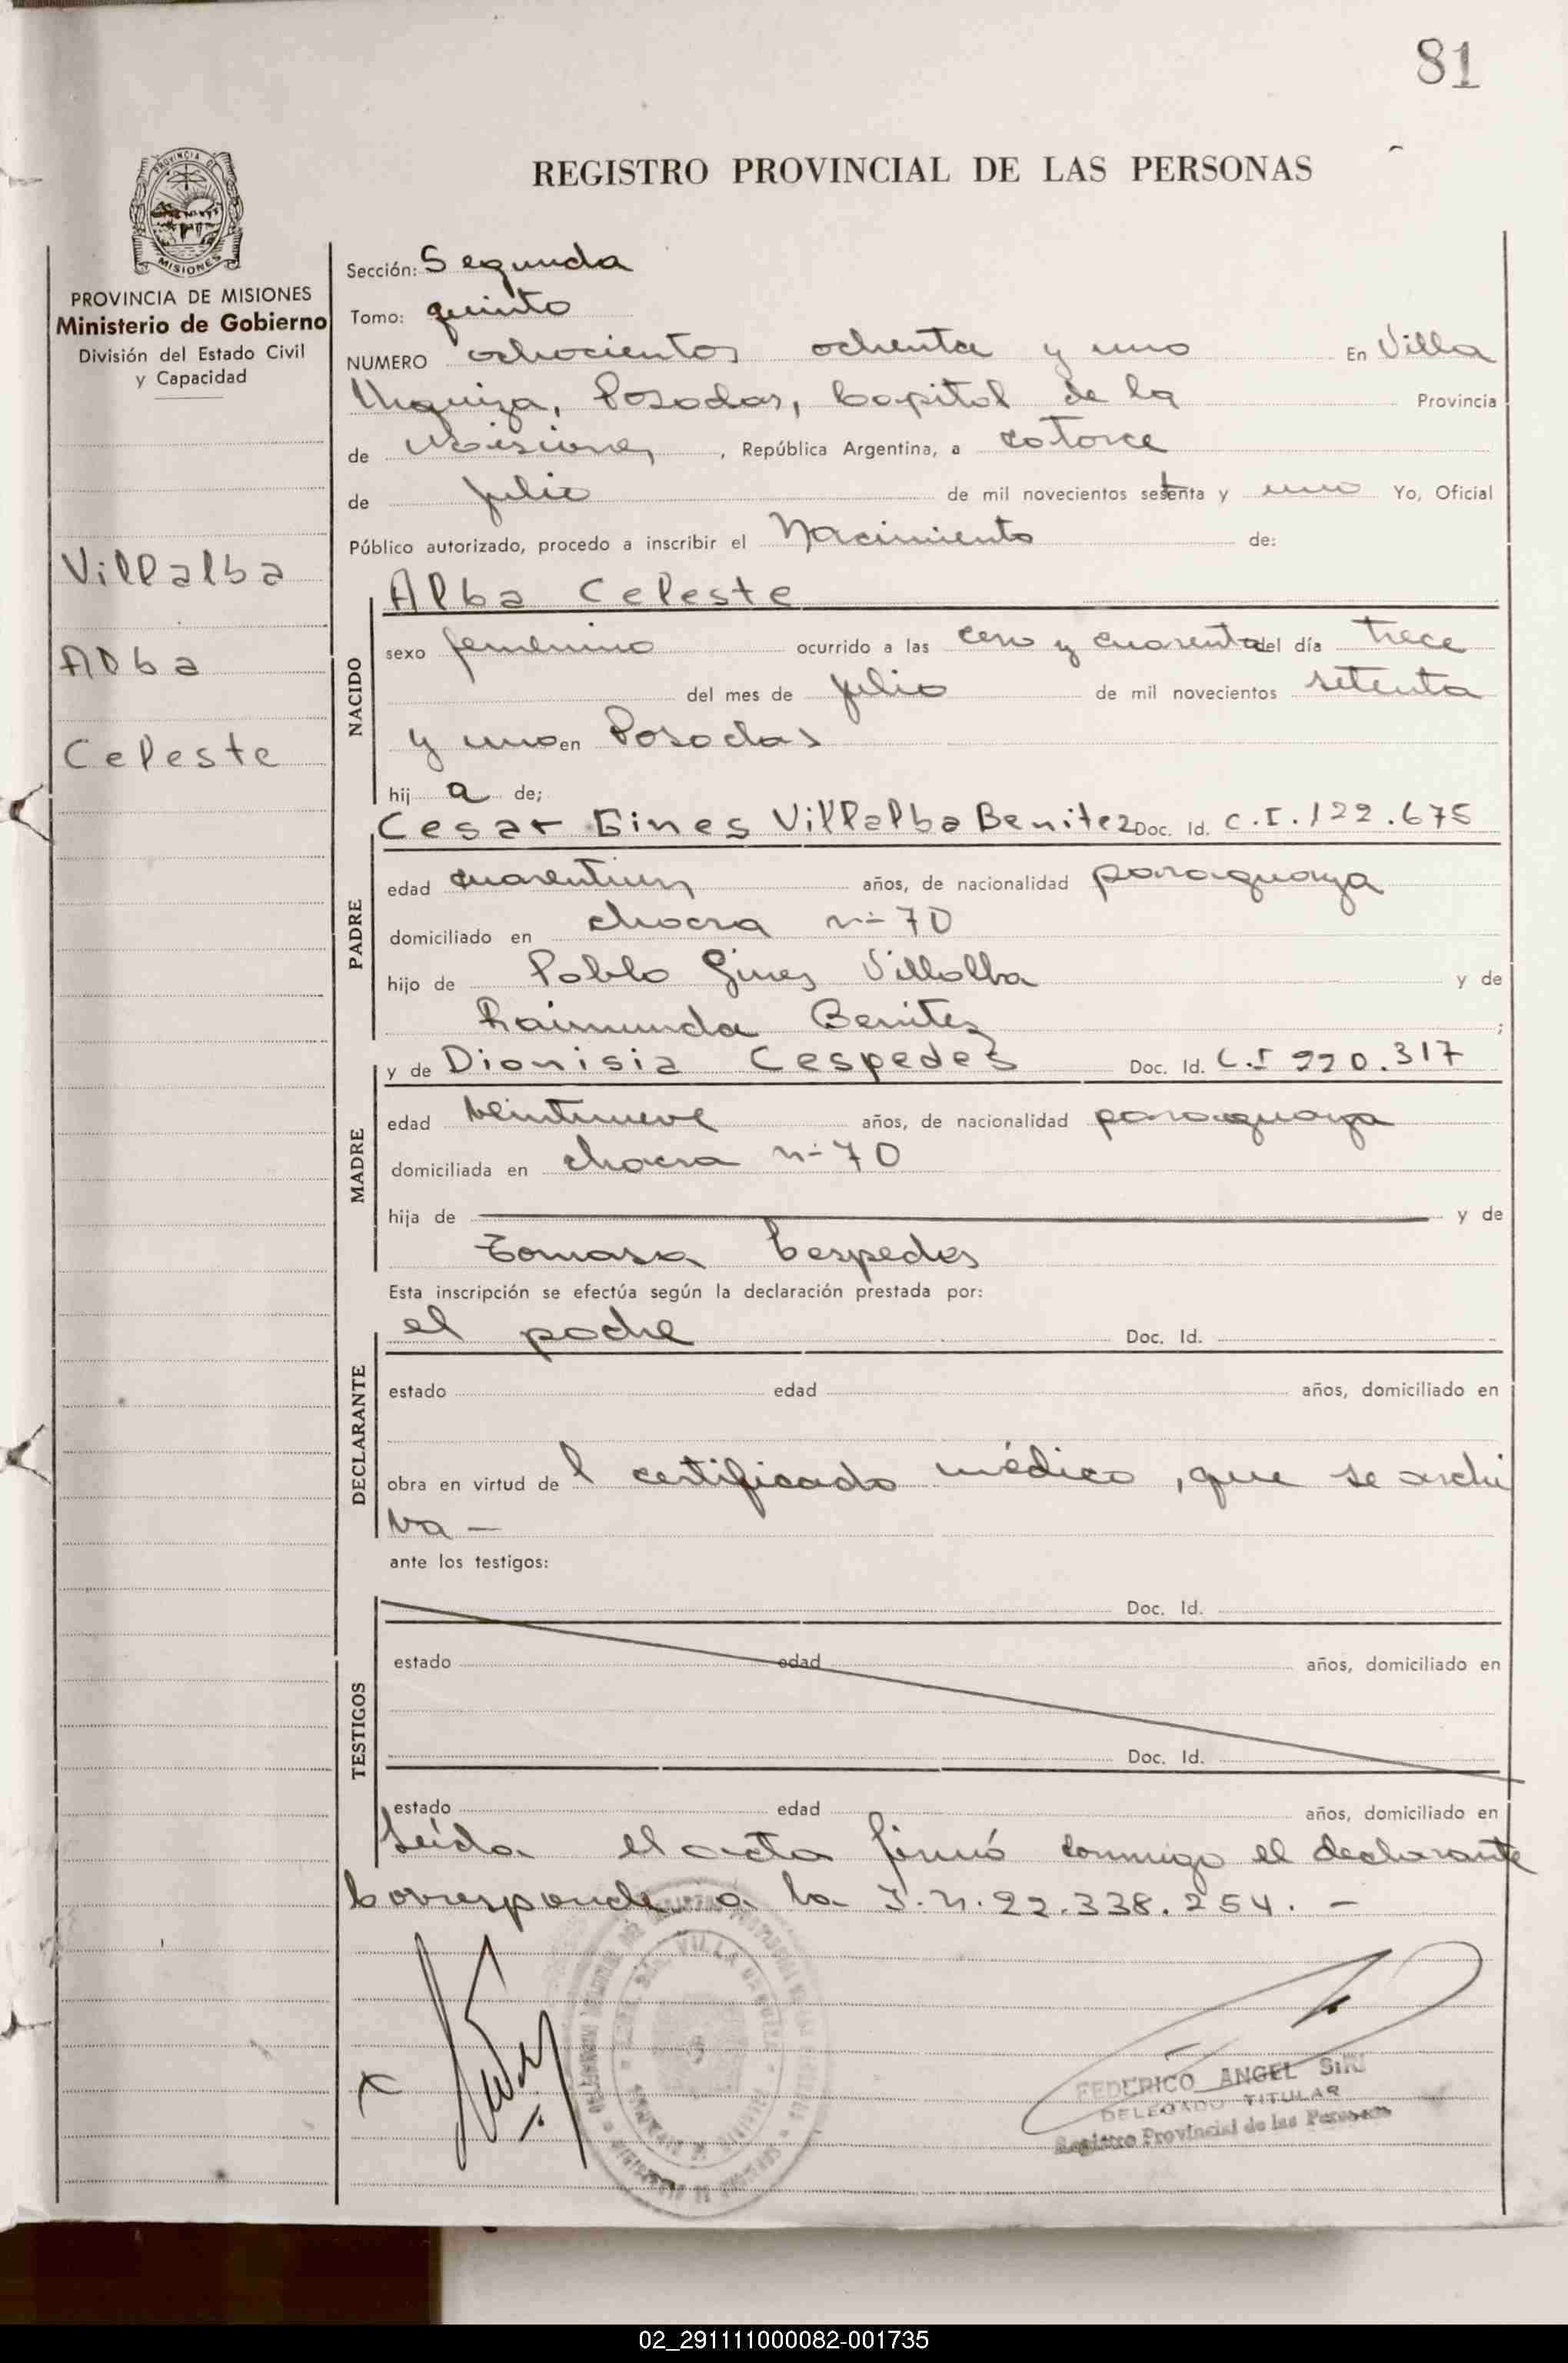 81
REGISTRO PROVINCIAL DE LAS PERSONAS
PROVINCIA DE
MISIONES
PROVINCIA DE MISIONES
Ministerio de Gobierno
División del Estado Civil
y Capacidad
Villalba
Alba
Celeste
Sección: Segunda
Tomo: quinto
NUMERO ochocientos ochenta y uno En Villa
Urquiza, Posadas, Capital de la Provincia
de Misiones, República Argentina, a catorce
de julio de mil novecientos setenta y uno Yo, Oficial
Público autorizado, procedo a inscribir el Nacimiento de:
Alba Celeste
NACIDO
sexo femenino ocurrido a las cero y cuarenta del día trece
del mes de julio de mil novecientos setenta
y uno en Posadas
hij a de;
Cesar Gines Villalba Benitez Doc. Id. C.I. 122.675
PADRE
edad cuarentiun años, de nacionalidad paraguaya
domiciliado en chacra nº 70
hijo de Pablo Gines Villalba y de
Raimunda Benitez ;
y de Dionisia Cespedes Doc. Id. C.I 220.317
MADRE
edad veintinueve años, de nacionalidad paraguaya
domiciliada en chacra nº 70
hija de y de
Tomasa Cespedes
Esta inscripción se efectúa según la declaración prestada por:
el padre Doc. Id.
DECLARANTE
estado edad años, domiciliado en
obra en virtud de l certificado médico, que se archi
va —
ante los testigos:
TESTIGOS
Doc. Id.
estado edad años, domiciliado en
Doc. Id.
estado edad años, domiciliado en
Leída el acta firmó conmigo el declarante
Corresponde a la I.N. 22.338.254. —
VILLA URQUIZA
FEDERICO ANGEL SIRI
DELEGADO TITULAR
Registro Provincial de las Personas
02_291111000082-001735